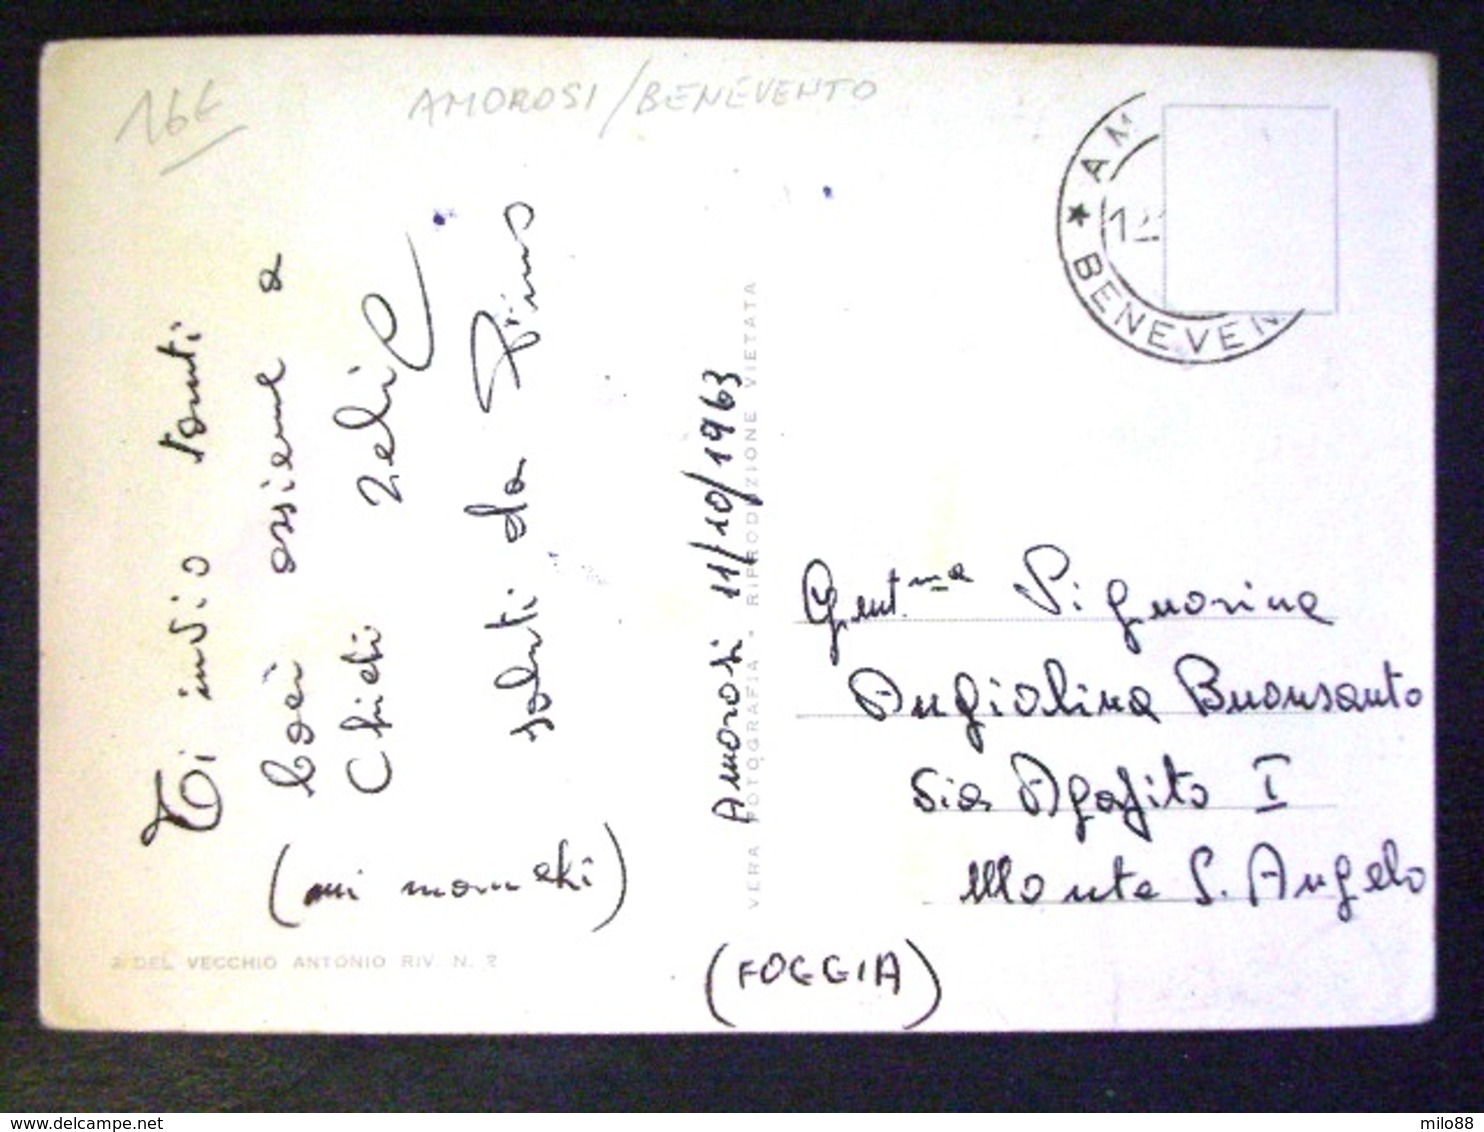 16€
AMOROSI/BENEVENTO
AM
12
BENEVEN
Ti invio tanti
baci assieme a
Chidi
saluti da
(mi manchi)
Amorosi 11/10/1963
VERA FOTOGRAFIA - RIPRODUZIONE VIETATA
Gent.ma Signorina
Angiolina Buonsanto
via Agapito I
Monte S. Angelo
(FOGGIA)
DEL VECCHIO ANTONIO RIV. N. 2
www.delcampe.net
milo88